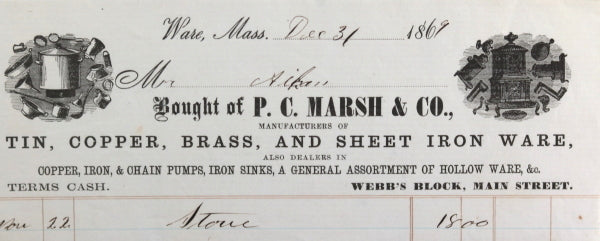 Ware, Mass. Dec 31 1869
Mr Aiken
Bought of P. C. MARSH & CO.,
MANUFACTURERS OF
TIN, COPPER, BRASS, AND SHEET IRON WARE,
ALSO DEALERS IN
COPPER, IRON, & CHAIN PUMPS, IRON SINKS, A GENERAL ASSORTMENT OF HOLLOW WARE, &c.
TERMS CASH. WEBB'S BLOCK, MAIN STREET.
Nov 22 Stove 18 00